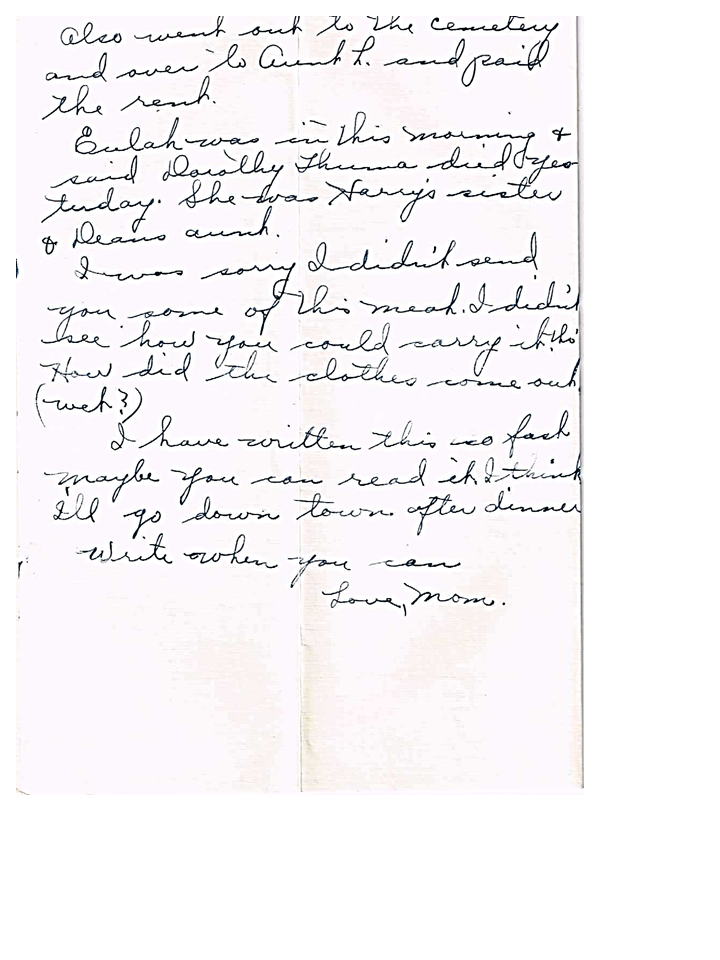 Also went out to the cemetery
and over to Aunt L. and paid
the rent.
Eulah was in this morning &
said Dorothy Thuma died yes
terday. She was Harry's sister
& Deans aunt.
I was sorry I didn't send
you some of this meat. I didn't
see how you could carry it tho'
How did the clothes come out.
(wet?)
I have written this so fast
maybe you can read it. I think
I'll go down town after dinner
Write when you can
Love, Mom.